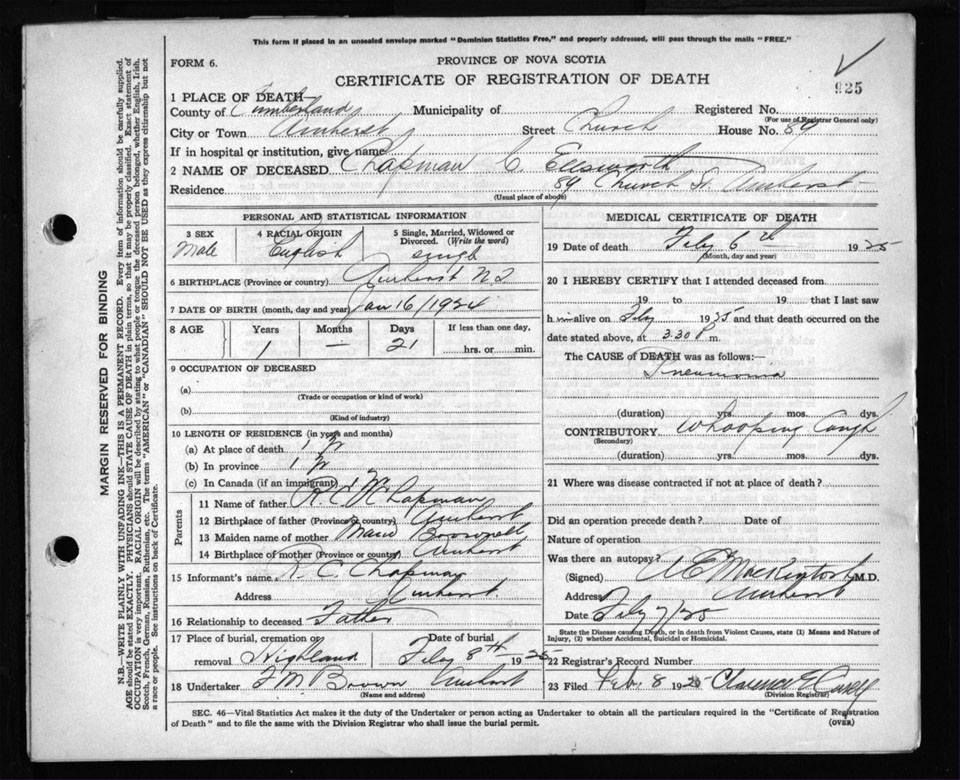 This form if placed in an unsealed envelope marked "Dominion Statistics Free," and properly addressed, will pass through the mails "FREE."
FORM 6.
PROVINCE OF NOVA SCOTIA
CERTIFICATE OF REGISTRATION OF DEATH
925
1 PLACE OF DEATH—
County of Cumberland Municipality of Registered No.
(For use of Registrar General only)
City or Town Amherst Street Church House No. 89
If in hospital or institution, give name
2 NAME OF DECEASED Chapman C. Ellsworth
Residence 89 Church St. Amherst
(Usual place of abode)
PERSONAL AND STATISTICAL INFORMATION
3 SEX Male
4 RACIAL ORIGIN English
5 Single, Married, Widowed or Divorced. (Write the word) single
6 BIRTHPLACE (Province or country) Amherst N.S.
7 DATE OF BIRTH (month, day and year) Jan 16/1924
8 AGE Years Months Days If less than one day,
1 — 21 hrs. or min.
9 OCCUPATION OF DECEASED
(a)
(Trade or occupation or kind of work)
(b)
(Kind of industry)
10 LENGTH OF RESIDENCE (in years and months)
(a) At place of death 1 yr
(b) In province 1 yr
(c) In Canada (if an immigrant)
Parents
11 Name of father R. C. Chapman
12 Birthplace of father (Province or country) Amherst
13 Maiden name of mother Maud Brownell
14 Birthplace of mother (Province or country) Amherst
15 Informant's name R. C. Chapman
Address Amherst
16 Relationship to deceased Father
17 Place of burial, cremation or removal Highland
Date of burial Feby 8th 1925
18 Undertaker F.M. Brown Amherst
(Name and address)
MEDICAL CERTIFICATE OF DEATH
19 Date of death Feby 6th 1925
(Month, day and year)
20 I HEREBY CERTIFY that I attended deceased from
19 to 19 that I last saw
him alive on Feby 1925 and that death occurred on
date stated above, at 3.30 P m.
The CAUSE of DEATH was as follows:—
Pneumonia
(duration) yrs. mos. dys.
CONTRIBUTORY Whooping Cough
(Secondary)
(duration) yrs. mos. dys.
21 Where was disease contracted if not at place of death?
Did an operation precede death? Date of
Nature of operation
Was there an autopsy?
(Signed) Mackintosh M.D.
Address Amherst
Date Feby 7/25
State the Disease causing Death, or in death from Violent Causes, state (1) Means and Nature of Injury, (2) whether Accidental, Suicidal or Homicidal.
22 Registrar's Record Number
23 Filed Feb. 8 1925 Clarence
(Division Registrar)
SEC. 46—Vital Statistics Act makes it the duty of the Undertaker or person acting as Undertaker to obtain all the particulars required in the "Certificate of Registration of Death" and to file the same with the Division Registrar who shall issue the burial permit.
(OVER)
MARGIN RESERVED FOR BINDING
N.B.—WRITE PLAINLY WITH UNFADING INK—THIS IS A PERMANENT RECORD. Every item of information should be carefully supplied.
AGE should be stated EXACTLY. PHYSICIANS should STATE CAUSE OF DEATH in plain terms, so that it may be properly classified. Exact statement of
OCCUPATION is very important. RACIAL ORIGIN will be described by stating to what people or tongue the deceased person belonged, whether English, Irish,
Scotch, French, German, Russian, Ruthenian, etc. The terms "AMERICAN" or "CANADIAN" SHOULD NOT BE USED as they express citizenship but not
a race or people. See instructions on back of Certificate.